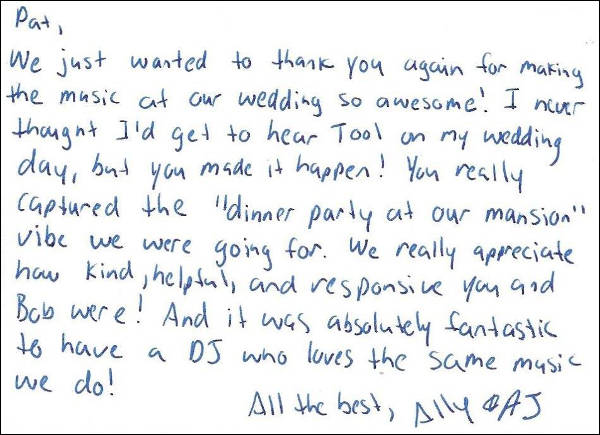 Pat,
We just wanted to thank you again for making
the music at our wedding so awesome! I never
thought I'd get to hear Tool on my wedding
day, but you made it happen! You really
captured the "dinner party at our mansion"
vibe we were going for. We really appreciate
how kind, helpful, and responsive you and
Bob were! And it was absolutely fantastic
to have a DJ who loves the same music
we do!
All the best, Ally & AJ